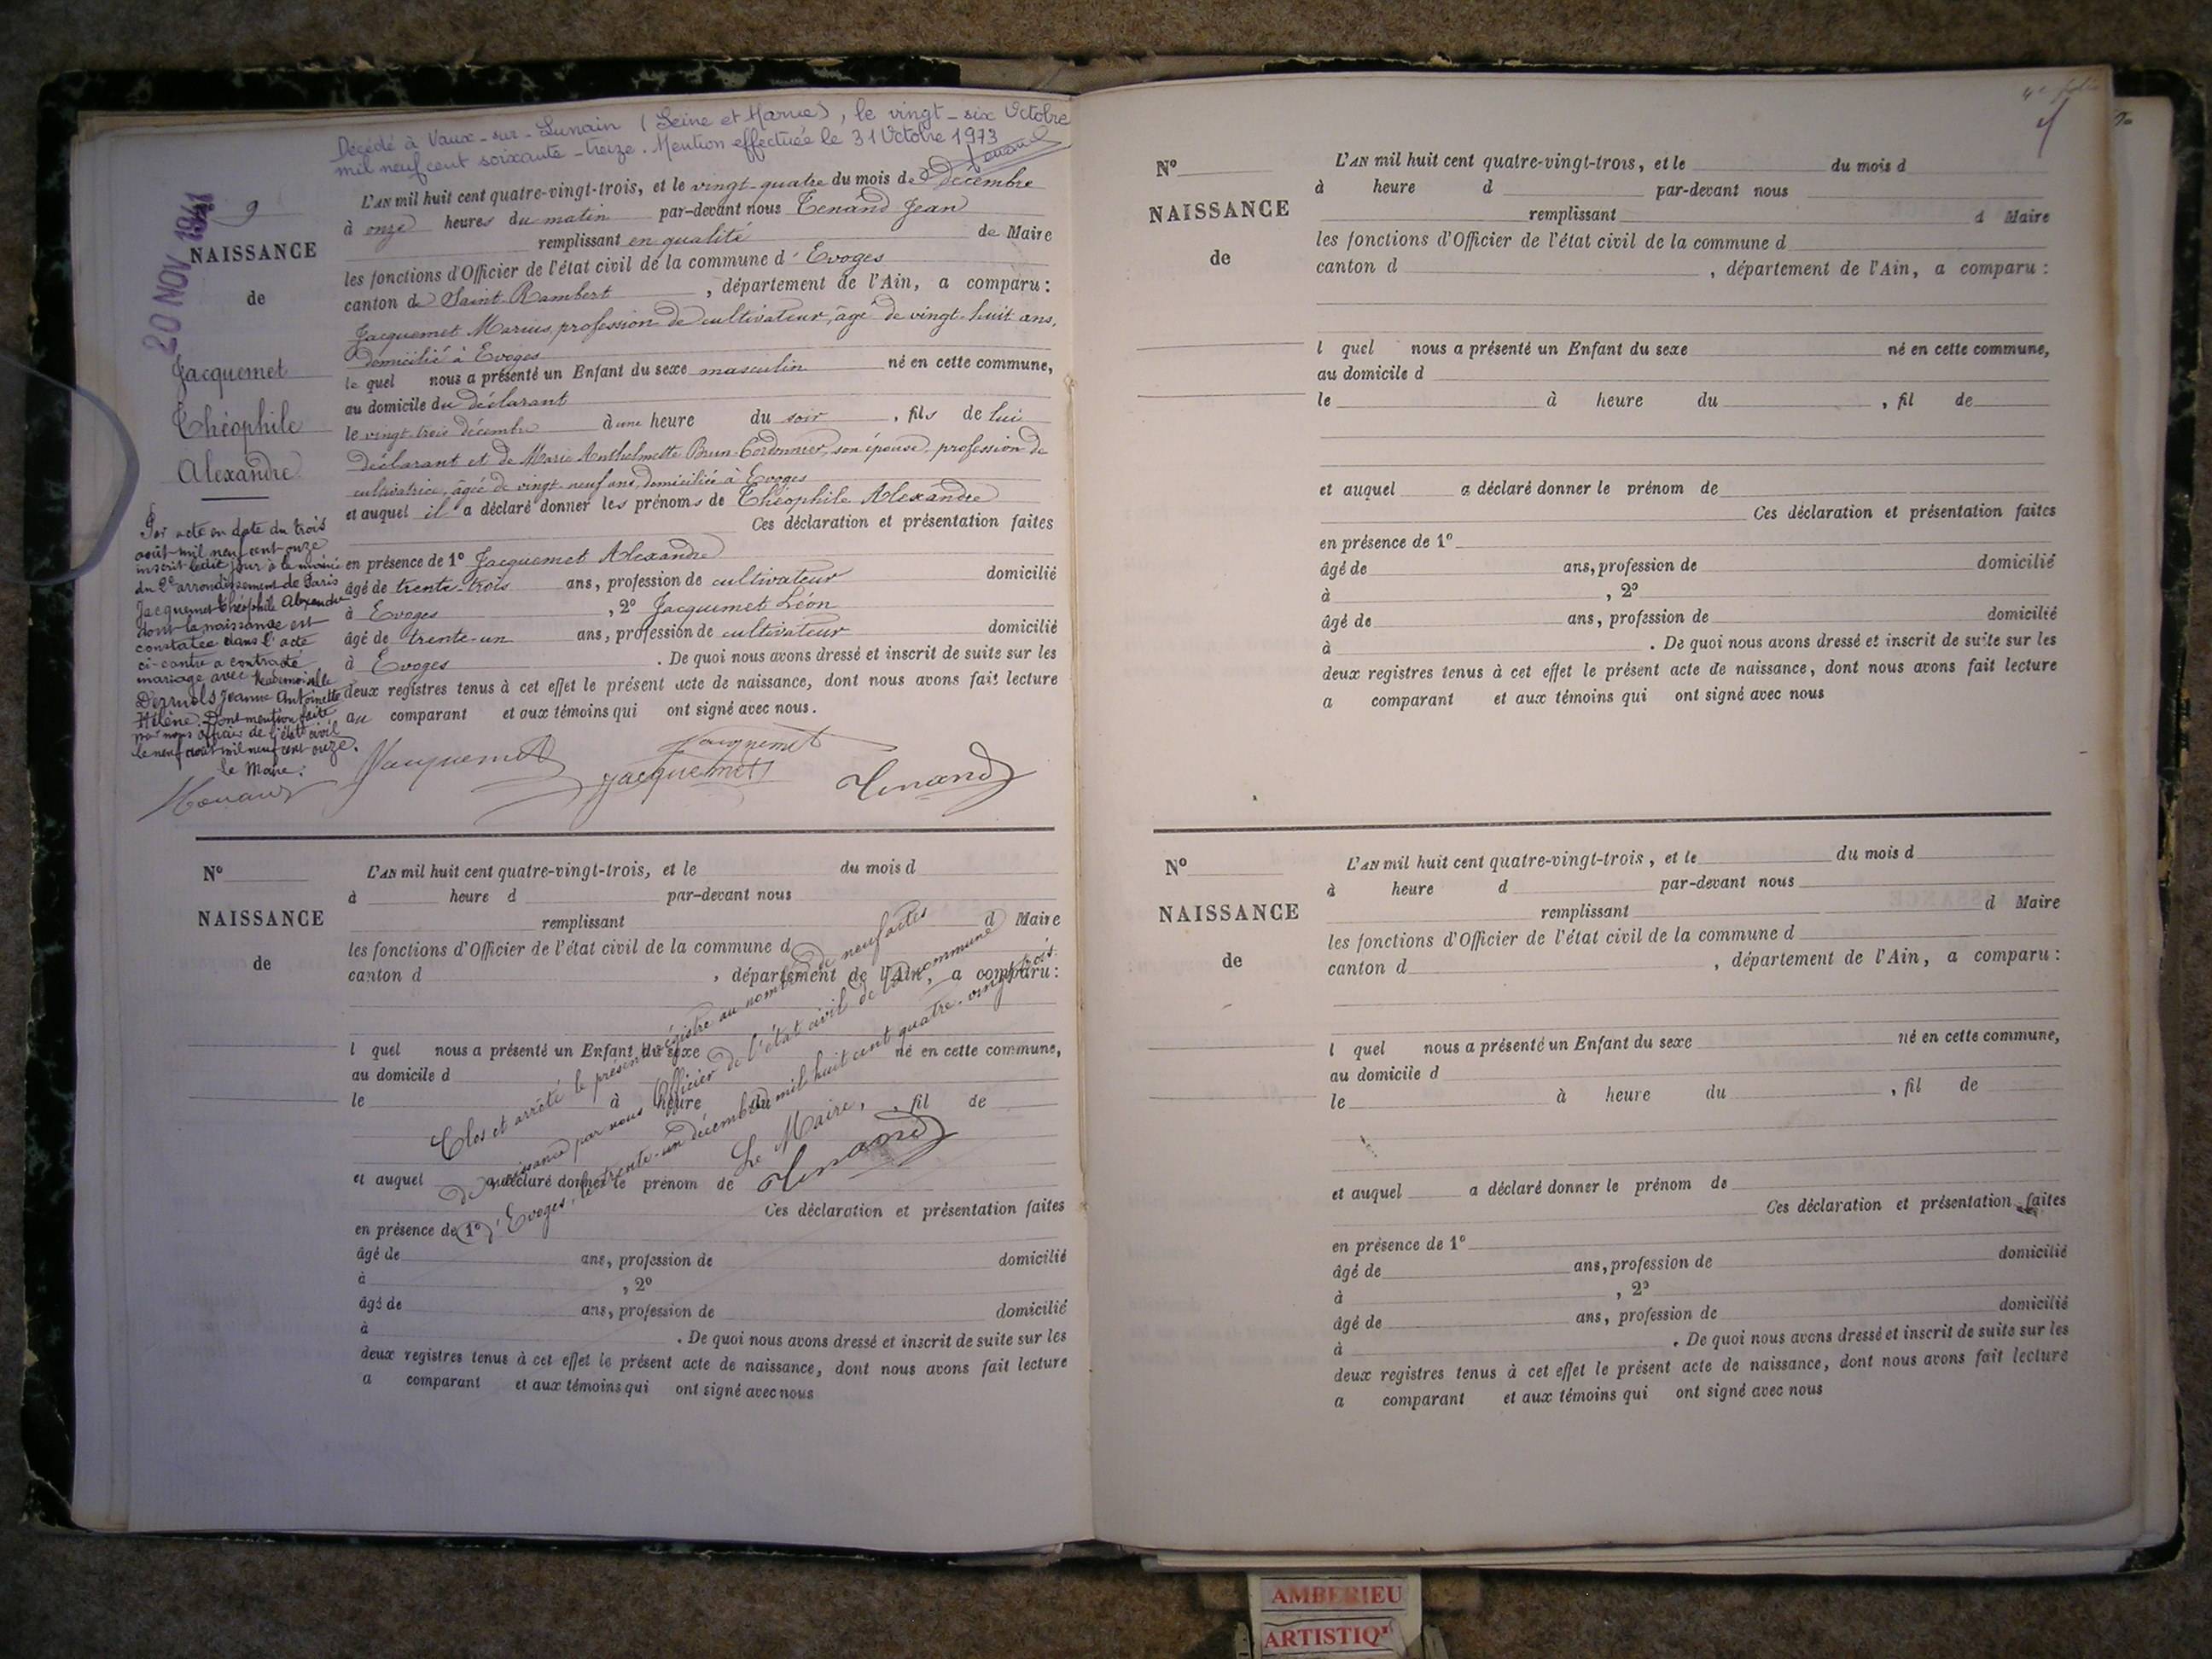 Décédé à Vaux-sur-Lunain (Seine et Marne), le vingt-six Octobre
mil neuf cent soixante-treize. Mention effectuée le 31 Octobre 1973
20 NOV 1941
9
NAISSANCE
de
Jacquemet
Théophile
Alexandre
L'AN mil huit cent quatre-vingt-trois, et le vingt-quatre du mois de décembre
à onze heures du matin par-devant nous Tenand Jean
remplissant en qualité de Maire
les fonctions d'Officier de l'état civil de la commune d'Evoges
canton de Saint-Rambert, département de l'Ain, a comparu :
Jacquemet Marius, profession de cultivateur, âgé de vingt-huit ans,
domicilié à Evoges
le quel nous a présenté un Enfant du sexe masculin né en cette commune,
au domicile du déclarant
le vingt-trois décembre à une heure du soir, fils de lui
déclarant et de Marie Anthelmette Brun-Cordonnier, son épouse, profession de
cultivatrice, âgée de vingt-neuf ans, domiciliée à Evoges
et auquel il a déclaré donner les prénoms de Théophile Alexandre
Ces déclaration et présentation faites
en présence de 1º Jacquemet Alexandre
âgé de trente-trois ans, profession de cultivateur domicilié
à Evoges, 2º Jacquemet Léon
âgé de trente-un ans, profession de cultivateur domicilié
à Evoges. De quoi nous avons dressé et inscrit de suite sur les
deux registres tenus à cet effet le présent acte de naissance, dont nous avons fait lecture
au comparant et aux témoins qui ont signé avec nous.
Jacquemet
Jacquemet
Jacquemet
Tenand
Par acte en date du trois
août mil neuf cent onze
inscrit ledit jour à la mairie
du 2e arrondissement de Paris
Jacquemet Théophile Alexandre
dont la naissance est
constatée dans l'acte
ci-contre a contracté
mariage avec Mademoiselle
Jeanne Antoinette
Hélène. Dont mention faite
par nous officier de l'état civil
le neuf août mil neuf cent onze.
le Maire :
Nº
NAISSANCE
de
L'AN mil huit cent quatre-vingt-trois, et le du mois d
à heure d par-devant nous
remplissant d Maire
les fonctions d'Officier de l'état civil de la commune d
canton d , département de l'Ain, a comparu :
l quel nous a présenté un Enfant du sexe né en cette commune,
au domicile d
le à heure du , fil de
et auquel a déclaré donner le prénom de
Ces déclaration et présentation faites
en présence de 1º
âgé de ans, profession de domicilié
à , 2º
âgé de ans, profession de domicilié
à . De quoi nous avons dressé et inscrit de suite sur les
deux registres tenus à cet effet le présent acte de naissance, dont nous avons fait lecture
a comparant et aux témoins qui ont signé avec nous
Clos et arrêté le présent régistre au nombre de neuf actes
de naissance par nous Officier de l'état civil de la commune
d'Evoges, le trente-un décembre mil huit cent quatre-vingt-trois.
Le Maire,
Tenand
4e folio
Nº
NAISSANCE
de
L'AN mil huit cent quatre-vingt-trois, et le du mois d
à heure d par-devant nous
remplissant d Maire
les fonctions d'Officier de l'état civil de la commune d
canton d , département de l'Ain, a comparu :
l quel nous a présenté un Enfant du sexe né en cette commune,
au domicile d
le à heure du , fil de
et auquel a déclaré donner le prénom de
Ces déclaration et présentation faites
en présence de 1º
âgé de ans, profession de domicilié
à , 2º
âgé de ans, profession de domicilié
à . De quoi nous avons dressé et inscrit de suite sur les
deux registres tenus à cet effet le présent acte de naissance, dont nous avons fait lecture
a comparant et aux témoins qui ont signé avec nous
Nº
NAISSANCE
de
L'AN mil huit cent quatre-vingt-trois, et le du mois d
à heure d par-devant nous
remplissant d Maire
les fonctions d'Officier de l'état civil de la commune d
canton d , département de l'Ain, a comparu :
l quel nous a présenté un Enfant du sexe né en cette commune,
au domicile d
le à heure du , fil de
et auquel a déclaré donner le prénom de
Ces déclaration et présentation faites
en présence de 1º
âgé de ans, profession de domicilié
à , 2º
âgé de ans, profession de domicilié
à . De quoi nous avons dressé et inscrit de suite sur les
deux registres tenus à cet effet le présent acte de naissance, dont nous avons fait lecture
a comparant et aux témoins qui ont signé avec nous
AMBERIEU
ARTISTIQ